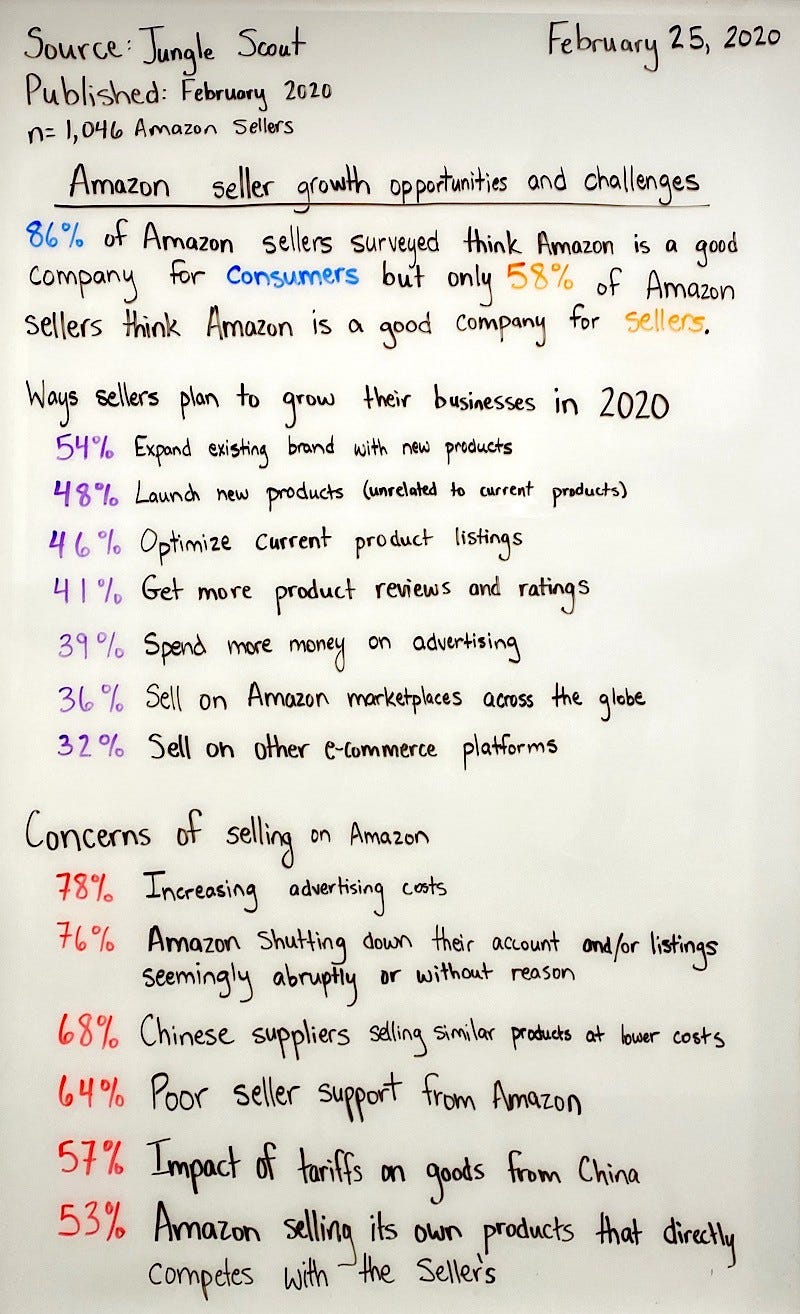 Source: Jungle Scout
February 25, 2020
Published: February 2020
n= 1,046 Amazon Sellers
Amazon seller growth opportunities and challenges
86% of Amazon sellers surveyed think Amazon is a good
company for Consumers but only 58% of Amazon
sellers think Amazon is a good company for sellers.
Ways sellers plan to grow their businesses in 2020
54% Expand existing brand with new products
48% Launch new products (unrelated to current products)
46% Optimize current product listings
41% Get more product reviews and ratings
39% Spend more money on advertising
36% Sell on Amazon marketplaces across the globe
32% Sell on other e-commerce platforms
Concerns of selling on Amazon
78% Increasing advertising costs
76% Amazon shutting down their account and/or listings
seemingly abruptly or without reason
68% Chinese suppliers selling similar products at lower costs
64% Poor seller support from Amazon
57% Impact of tariffs on goods from China
53% Amazon selling its own products that directly
competes with the Seller's